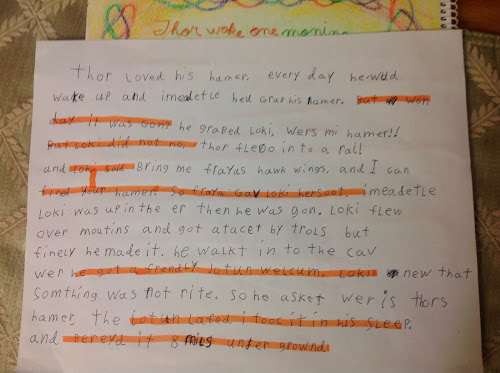 Thor woke one moning
Thor Loved his hamer. every day he wud
wake up and imedetle hed grap his hamer. But won
day it was gone he graped Loki, wers mi hamer!!
But Loki did not no, thor fledd in to a rall
and Loki sad Bring me frayas hawk wings, and I can
find your hamer. So fraya gav Loki hersoot, imeadetle
Loki was up in the er then he was gon. Loki flew
over moutins and got atacet by trols but
finely he made it. he walkt in to the cav
wer he got a frendly Jotun welcum. Loki new that
Somthing was not rite. So he asket wer is thors
hamer, the Jotun lafed i tooc it in his sleep.
and bereyd it 8 miles unter grownd